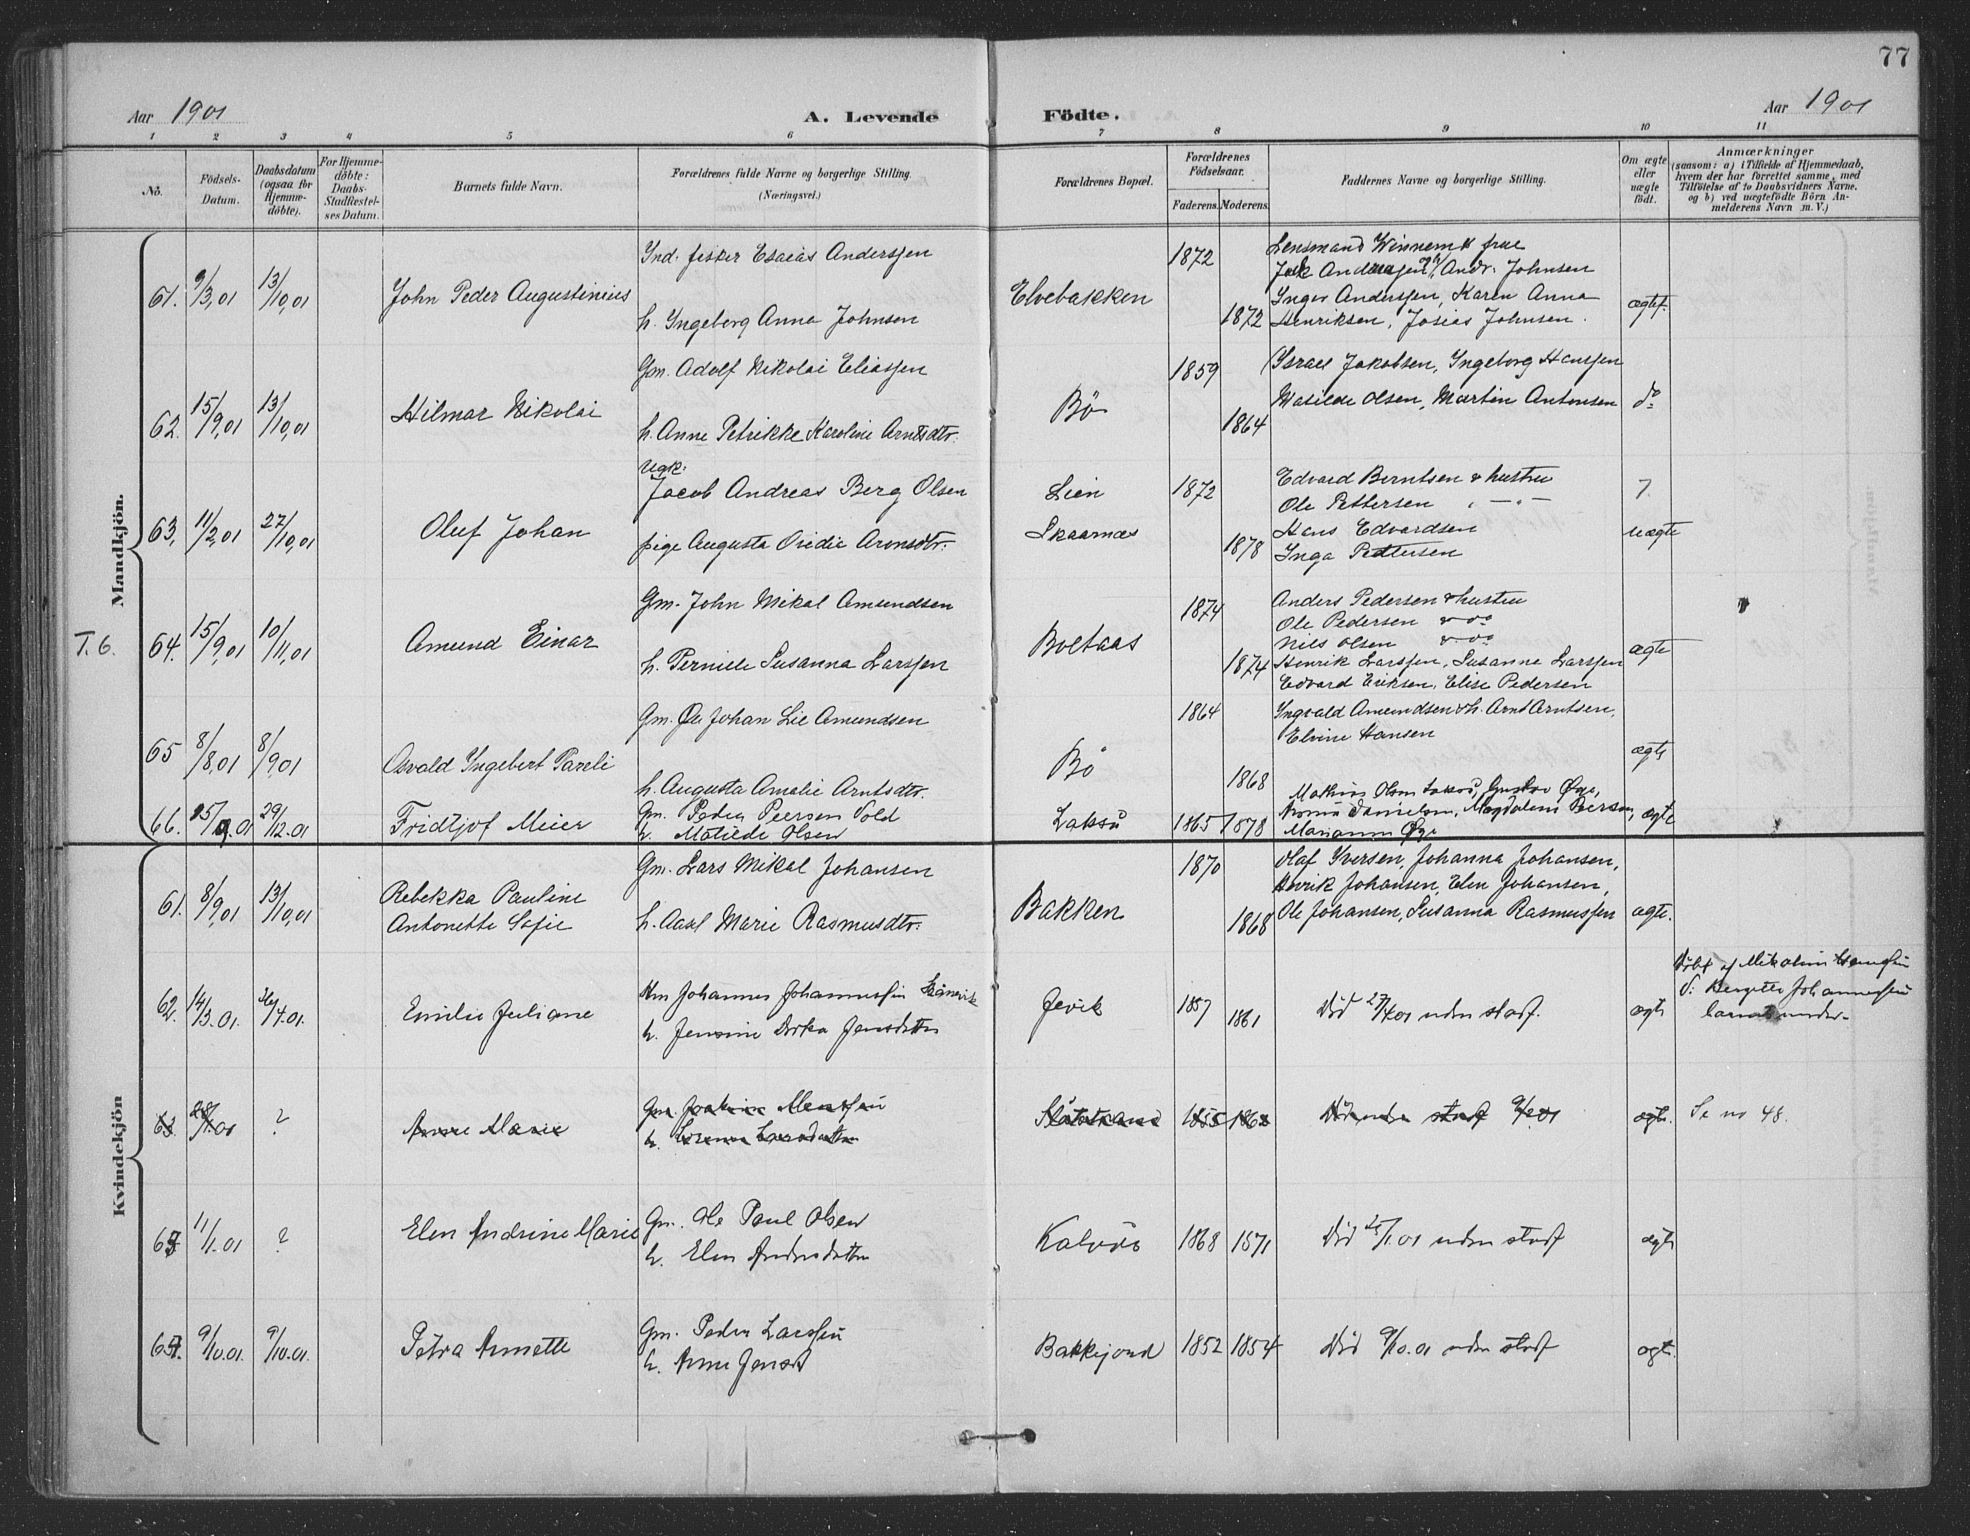 77
Aar 1901
A. Levende
Födte.
Aar 1901
1 2 3 4 5 6 7 8 9 10 11
No.
Födsels-Datum.
Daabsdatum (ogsaa for Hjemmedöbte).
For Hjemmedöbte: Daabs-Stadfæstelses Datum.
Barnets fulde Navn.
Forældrenes fulde Navne og borgerlige Stilling.
(Næringsvei.)
Forældrenes Bopæl.
Forældrenes Födselsaar.
Faderens. Moderens.
Faddernes Navne og borgerlige Stilling.
Om ægte eller uægte födt.
Anmærkninger
(saasom: a) i Tilfælde af Hjemmedaab, hvem der har forrettet samme, med Tilföielse af to Daabsvidners Navne. og b) ved uægtefödte Börn Anmelderens Navn m. V.)
Mandkjön.
61. 9/3,01 13/10,01 John Peder Augustinius
Ind. fisker Esaias Anderssen
h. Ingeborg Anna Johnsen
Elvebakken 1872 1872
Lensmand frue
Andr. Johnsen
Inger Anderssen, Karen Anna
Henriksen, Josias Johnsen.
ægtef.
62. 15/9,01 13/10,01 Hilmar Nikolai
Gm. Adolf Nikolai Eliassen
h. Anne Petrikke Karoline Arntsdtr.
Bö 1859 1864
Israel Jakobsen, Ingeborg Hanssen
Matilde Olsen, Martin Antonsen
do
63, 11/2,01 27/10,01 Oluf Johan
Ugk:
Jacob Andreas Berg Olsen
pige Augusta Ovidie Aronsdtr.
Lien
Skaarnæs
1872 1878
Edvard Berntsen & hustru
Ole Pettersen " — " —
Hans Edvardsen
Inga Pettersen
7.
uægte
T. 6.
64. 15/9,01 10/11,01 Amund Einar
Gm. John Mikal Amundsen
h. Pernille Susanna Larssen
Boltaas 1874 1874
Anders Pedersen & hustru
Ole Pedersen & do
Nils Olsen & do
Henrik Larssen, Susanne Larssen
Edvard Eriksen, Elise Pedersen
ægte
65 8/8,01 8/9,01 Osvald Ingebert Pareli
Gm. Ole Johan Lie Amundsen
h. Augusta Amalie Arntsdtr.
Bö 1864 1868
Ingvald Amundsen & h. Arnt Arntsen,
Elvine Hansen
ægte
66. 25/9.01 29/12.01 Fridtjof Meier
Gm. Peder Peersen Vold
h. Matilde Olsen
Laksu 1865 1878
Mathias Olsen Laksu, Gustav Øye,
Danielsen, Magdalena Peersen,
Marianne Øye
ægte
Kvindekjön
61. 8/9,01 13/10,01 Rebekka Pauline
Antonette Sofie
Gm. Lars Mikal Johansen
h. Aasel Marie Rasmusdtr.
Bakken 1870 1868
Olaf Iversen, Johanna Johansen,
Henrik Johansen, Elen Johansen,
Ole Johansen, Susanna Rasmussen
ægte.
62. 14/3.01. 26/4.01. Emilie Juliane
Gm Johannes Johannessen
h. Jensine Dorka Jensdatter
Gevik 1857 1861
Död 27/4 01 uden stadf.
ægte
Döbt af Nikoline
v. Bergitte Johannessen
63. 28/1.01 ? Anne Marie
Gm. Joakim Menssen
h. Larsdatter
1855 1862
Död uden stadf 9/2 01
ægte.
Se no 48.
63 11/1.01 ? Elen Andrine Marie
Gm. Ole Paul Olsen
h. Elen Andersdatter
Kalvöe 1868 1871
Död 25/1.01 uden stadf
ægte
64. 9/10.01. 9/10.01. Petra Annette
Gm. Peder Larssen
h. Anne Jensd
Bakkejord 1852 1854
Död 9/10.01 uden stadf
ægte.